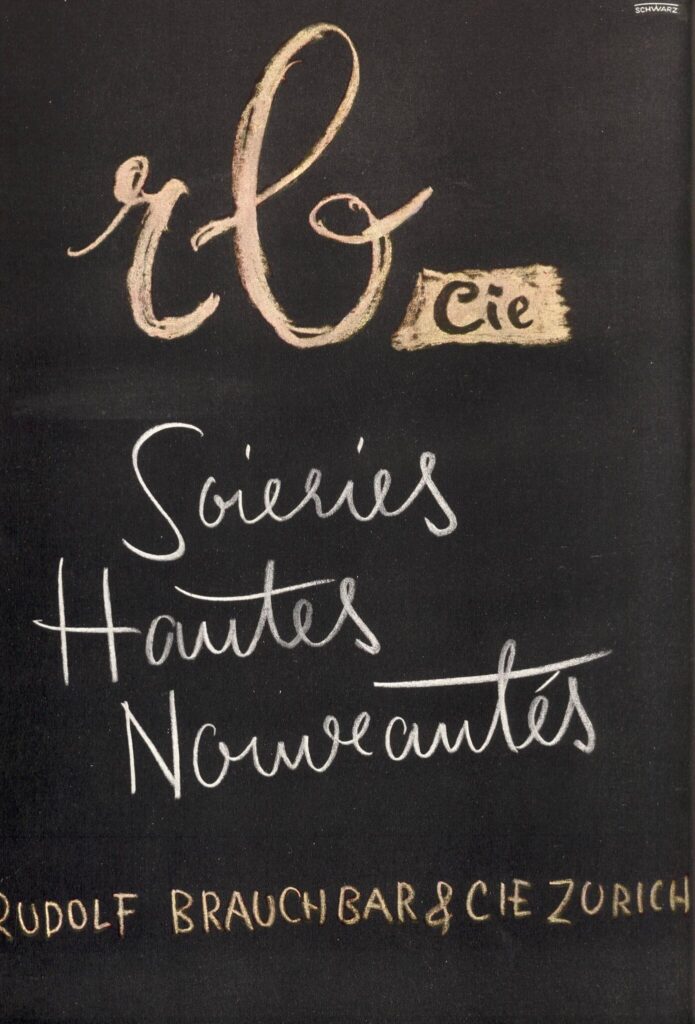 SCHWARZ
rb
Cie
Soieries
Hautes
Nouveautés
RUDOLF BRAUCHBAR & CIE ZURICH